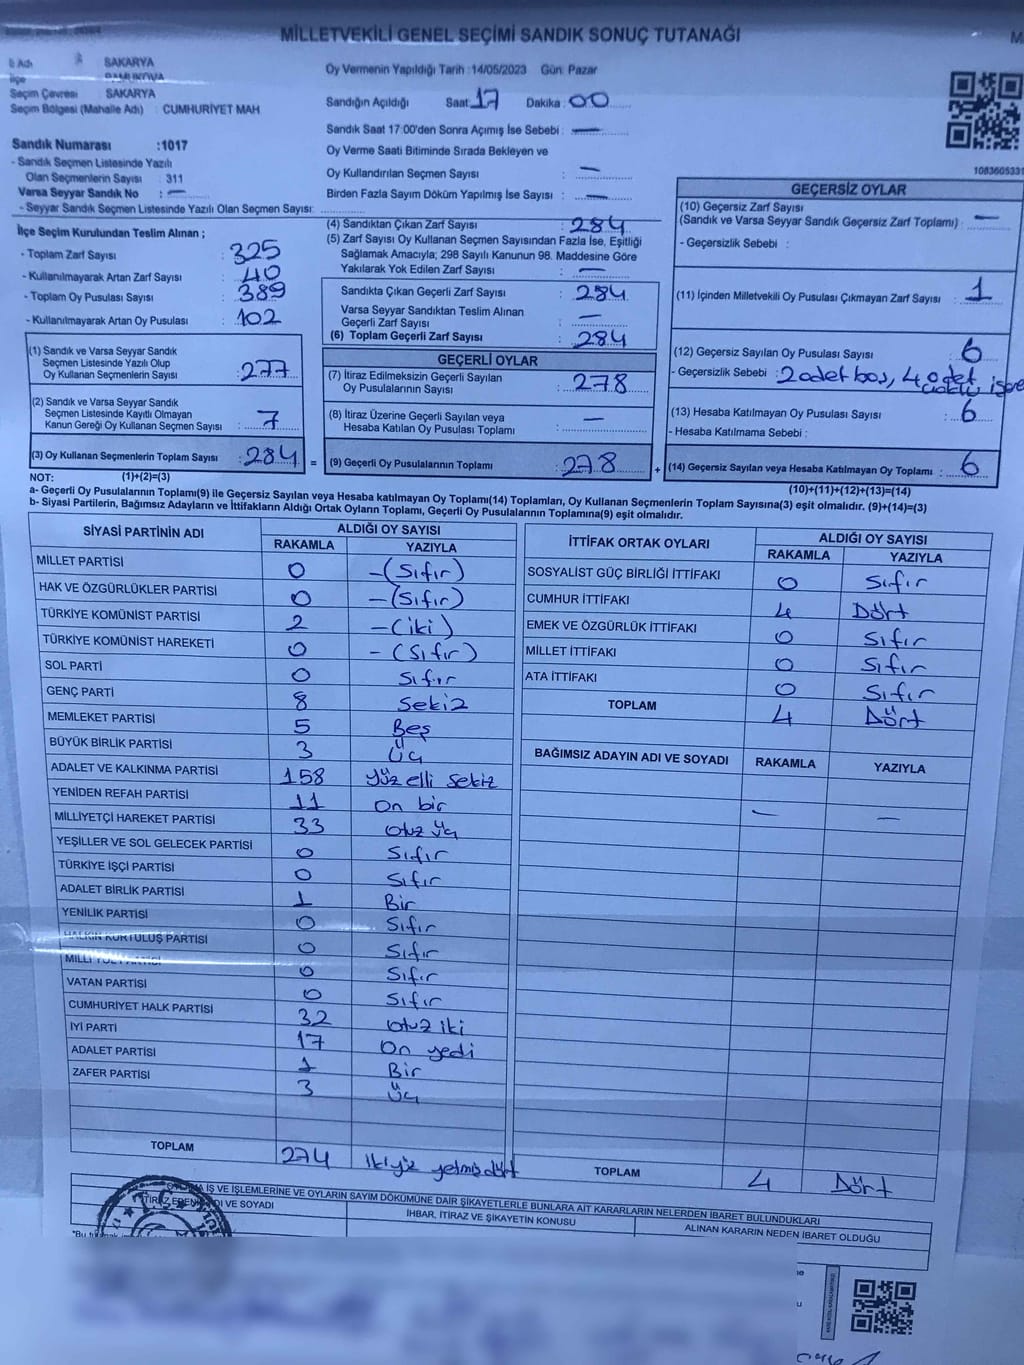 MİLLETVEKİLİ GENEL SEÇİMİ SANDIK SONUÇ TUTANAĞI
İl Adı SAKARYA
İlçe PAMUKOVA
Seçim Çevresi SAKARYA
Seçim Bölgesi (Mahalle Adı) : CUMHURİYET MAH
Oy Vermenin Yapıldığı Tarih :14/05/2023 Gün: Pazar
Sandığın Açıldığı Saat: 17 Dakika: 00
Sandık Saat 17:00'den Sonra Açımış İse Sebebi : —
Oy Verme Saati Bitiminde Sırada Bekleyen ve
Oy Kullandırılan Seçmen Sayısı : —
Birden Fazla Sayım Döküm Yapılmış İse Sayısı : —
Sandık Numarası :1017
- Sandık Seçmen Listesinde Yazılı
Olan Seçmenlerin Sayısı : 311
Varsa Seyyar Sandık No : —
- Seyyar Sandık Seçmen Listesinde Yazılı Olan Seçmen Sayısı:
İlçe Seçim Kurulundan Teslim Alınan ;
- Toplam Zarf Sayısı : 325
- Kullanılmayarak Artan Zarf Sayısı : 40
- Toplam Oy Pusulası Sayısı : 389
- Kullanılmayarak Artan Oy Pusulası : 102
(1) Sandık ve Varsa Seyyar Sandık
Seçmen Listesinde Yazılı Olup
Oy Kullanan Seçmenlerin Sayısı : 277
(2) Sandık ve Varsa Seyyar Sandık
Seçmen Listesinde Kayıtlı Olmayan
Kanun Gereği Oy Kullanan Seçmen Sayısı : 7
(3) Oy Kullanan Seçmenlerin Toplam Sayısı : 284
(4) Sandıktan Çıkan Zarf Sayısı : 284
(5) Zarf Sayısı Oy Kullanan Seçmen Sayısından Fazla İse, Eşitliği
Sağlamak Amacıyla; 298 Sayılı Kanunun 98. Maddesine Göre
Yakılarak Yok Edilen Zarf Sayısı : —
Sandıkta Çıkan Geçerli Zarf Sayısı : 284
Varsa Seyyar Sandıktan Teslim Alınan
Geçerli Zarf Sayısı : —
(6) Toplam Geçerli Zarf Sayısı : 284
GEÇERLİ OYLAR
(7) İtiraz Edilmeksizin Geçerli Sayılan
Oy Pusulalarının Sayısı : 278
(8) İtiraz Üzerine Geçerli Sayılan veya
Hesaba Katılan Oy Pusulası Toplamı : —
= (9) Geçerli Oy Pusulalarının Toplamı : 278
1083605331
GEÇERSİZ OYLAR
(10) Geçersiz Zarf Sayısı
(Sandık ve Varsa Seyyar Sandık Geçersiz Zarf Toplamı) : —
- Geçersizlik Sebebi :
(11) İçinden Milletvekili Oy Pusulası Çıkmayan Zarf Sayısı : 1
(12) Geçersiz Sayılan Oy Pusulası Sayısı : 6
- Geçersizlik Sebebi : 2 adet boş, 4 adet
(13) Hesaba Katılmayan Oy Pusulası Sayısı : 6
- Hesaba Katılmama Sebebi :
+ (14) Geçersiz Sayılan veya Hesaba Katılmayan Oy Toplamı : 6
NOT: (1)+(2)=(3) (10)+(11)+(12)+(13)=(14)
a- Geçerli Oy Pusulalarının Toplamı(9) ile Geçersiz Sayılan veya Hesaba katılmayan Oy Toplamı(14) Toplamları, Oy Kullanan Seçmenlerin Toplam Sayısına(3) eşit olmalıdır. (9)+(14)=(3)
b- Siyasi Partilerin, Bağımsız Adayların ve İttifakların Aldığı Ortak Oyların Toplamı, Geçerli Oy Pusulalarının Toplamına(9) eşit olmalıdır.
SİYASİ PARTİNİN ADI ALDIĞI OY SAYISI
RAKAMLA YAZIYLA
MİLLET PARTİSİ 0 -(Sıfır)
HAK VE ÖZGÜRLÜKLER PARTİSİ 0 -(Sıfır)
TÜRKİYE KOMÜNİST PARTİSİ 2 -(iki)
TÜRKİYE KOMÜNİST HAREKETİ 0 -(Sıfır)
SOL PARTİ 0 Sıfır
GENÇ PARTİ 8 Sekiz
MEMLEKET PARTİSİ 5 Beş
BÜYÜK BİRLİK PARTİSİ 3 Üç
ADALET VE KALKINMA PARTİSİ 158 Yüz elli Sekiz
YENİDEN REFAH PARTİSİ 11 On bir
MİLLİYETÇİ HAREKET PARTİSİ 33 otuz üç
YEŞİLLER VE SOL GELECEK PARTİSİ 0 Sıfır
TÜRKİYE İŞÇİ PARTİSİ 0 Sıfır
ADALET BİRLİK PARTİSİ 1 Bir
YENİLİK PARTİSİ 0 Sıfır
HALKIN KURTULUŞ PARTİSİ 0 Sıfır
MİLLİ YOL PARTİSİ 0 Sıfır
VATAN PARTİSİ 0 Sıfır
CUMHURİYET HALK PARTİSİ 32 otuz iki
İYİ PARTİ 17 On yedi
ADALET PARTİSİ 1 Bir
ZAFER PARTİSİ 3 Üç
TOPLAM 274 ikiyüz yetmiş dört
İTTİFAK ORTAK OYLARI ALDIĞI OY SAYISI
RAKAMLA YAZIYLA
SOSYALİST GÜÇ BİRLİĞİ İTTİFAKI 0 Sıfır
CUMHUR İTTİFAKI 4 Dört
EMEK VE ÖZGÜRLÜK İTTİFAKI 0 Sıfır
MİLLET İTTİFAKI 0 Sıfır
ATA İTTİFAKI 0 Sıfır
TOPLAM 4 Dört
BAĞIMSIZ ADAYIN ADI VE SOYADI RAKAMLA YAZIYLA
— —
TOPLAM 4 Dört
İŞ VE İŞLEMLERİNE VE OYLARIN SAYIM DÖKÜMÜNE DAİR ŞİKAYETLERLE BUNLARA AİT KARARLARIN NELERDEN İBARET BULUNDUKLARI
İTİRAZ EDENİN ADI VE SOYADI İHBAR, İTİRAZ VE ŞİKAYETİN KONUSU ALINAN KARARIN NEDEN İBARET OLDUĞU